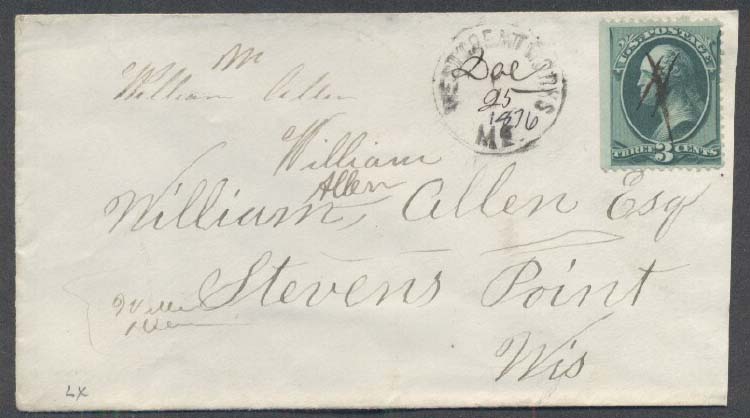 Mr
William Allen
WEST TRENT WORKS
Dec
25
1876
ME.
U.S. POSTAGE
THREE 3 CENTS
William
Allen
William, Allen Esq
Stevens Point
Wis
Wille
Allen
LX